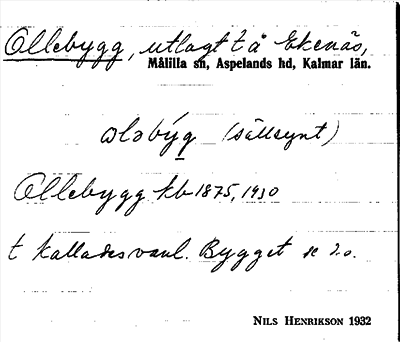 Ollebygg, utlagt t å Ekenäs,
Målilla sn, Aspelands hd, Kalmar län.
ɷləby̗g (sällsynt)
Ollebygg kb 1875, 1930
t kallades vanl. Bygget se d.o.
NILS HENRIKSON 1932